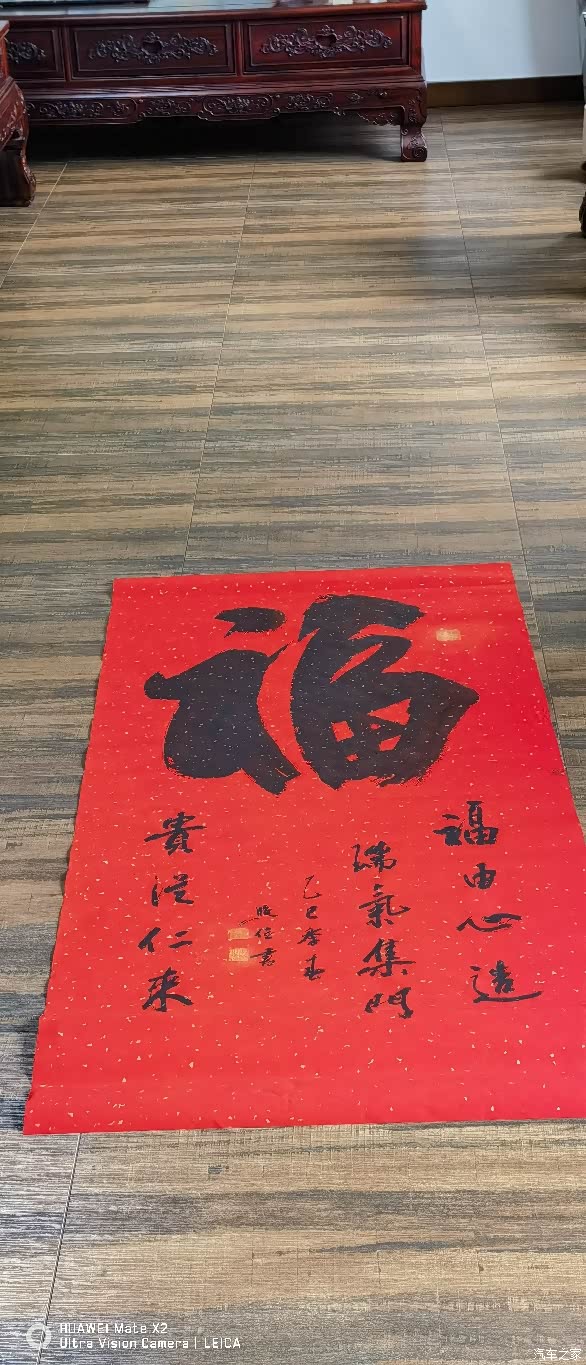 福
福由心造
瑞氣集門
貴從仁來
乙巳
書
HUAWEI Mate X2
Ultra Vision Camera | LEICA
汽车之家